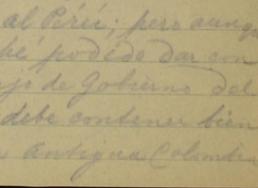 al Perú; pero aunq
hé podido dar con
jo de Gobierno del
debe contener bien
Antigua Colombi